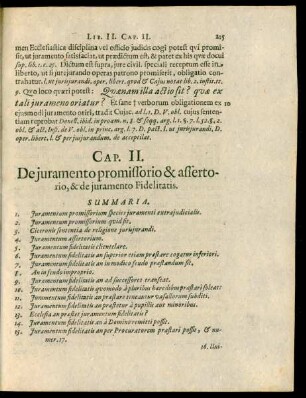 LIB. II. CAP. II. 205
men Ecclesiastica disciplina vel officio judicis cogi potest qvi promi-
sit, ut juramento satisfaciat, ut prædictum est, & patet ex his qvæ docui
sup. lib. 1. c. 42. Dictum est supra, jure civili speciali receptum esse in
liberto, ut si jurejurando operas patrono promiserit, obligatio con-
trahatur. l. ut jurisjurandi, oper. libert. qvod & Cujac. notat lib. 2. instit. tit.
9. Qvo loco qværi potest: Quænam illa actio sit? quæ ex
tali juramento oriatur? Et sane † verborum obligationem ex
ejusmodi juramento oriri, tradit Cujac. ad l. 1. D. V. obl. cujus senten-
tiam reprobat
obl. & all, Inst. de V. obl. in princ. arg. l. 7. D. pact. l. ut jurisjurandi, D.
oper. libert. l. & per jusjurandum. de acceptilat.
CAP. II.
De juramento promissorio & asserto-
rio, & de juramento Fidelitatis.
SUMMARIA.
1. Juramentum promissorium species juramenti extrajudicialis.
2. Juramentum promissorium qvid sit.
3. Ciceronis sententia de religione jurisjurandi.
4. Juramentum assertorium.
5. Juramentum fidelitatis clientelare.
6. Juramentum fidelitatis an superior etiam præstare cogatur inferiori.
7. Juramentum fidelitatis an in modico feudo præstandum sit,
8. An in feudo improprio.
9. Juramentum fidelitatis an ad successores transeat.
10. Juramentum fidelitatis qvomodo à pluribus hæredibus præstari soleat:
11. Juramentum fidelitatis an præstare teneantur Vasallorum subditi.
12. Juramentum fidelitatis an præstetur à pupillis aut minoribus.
13. Ecclesia an præstet juramentum fidelitatis?
14. Juramentum fidelitatis an à Domino remitti posse.
15. Juramentum fidelitatis an per Procuratorem præstari posse, & nu-
mer. 17.